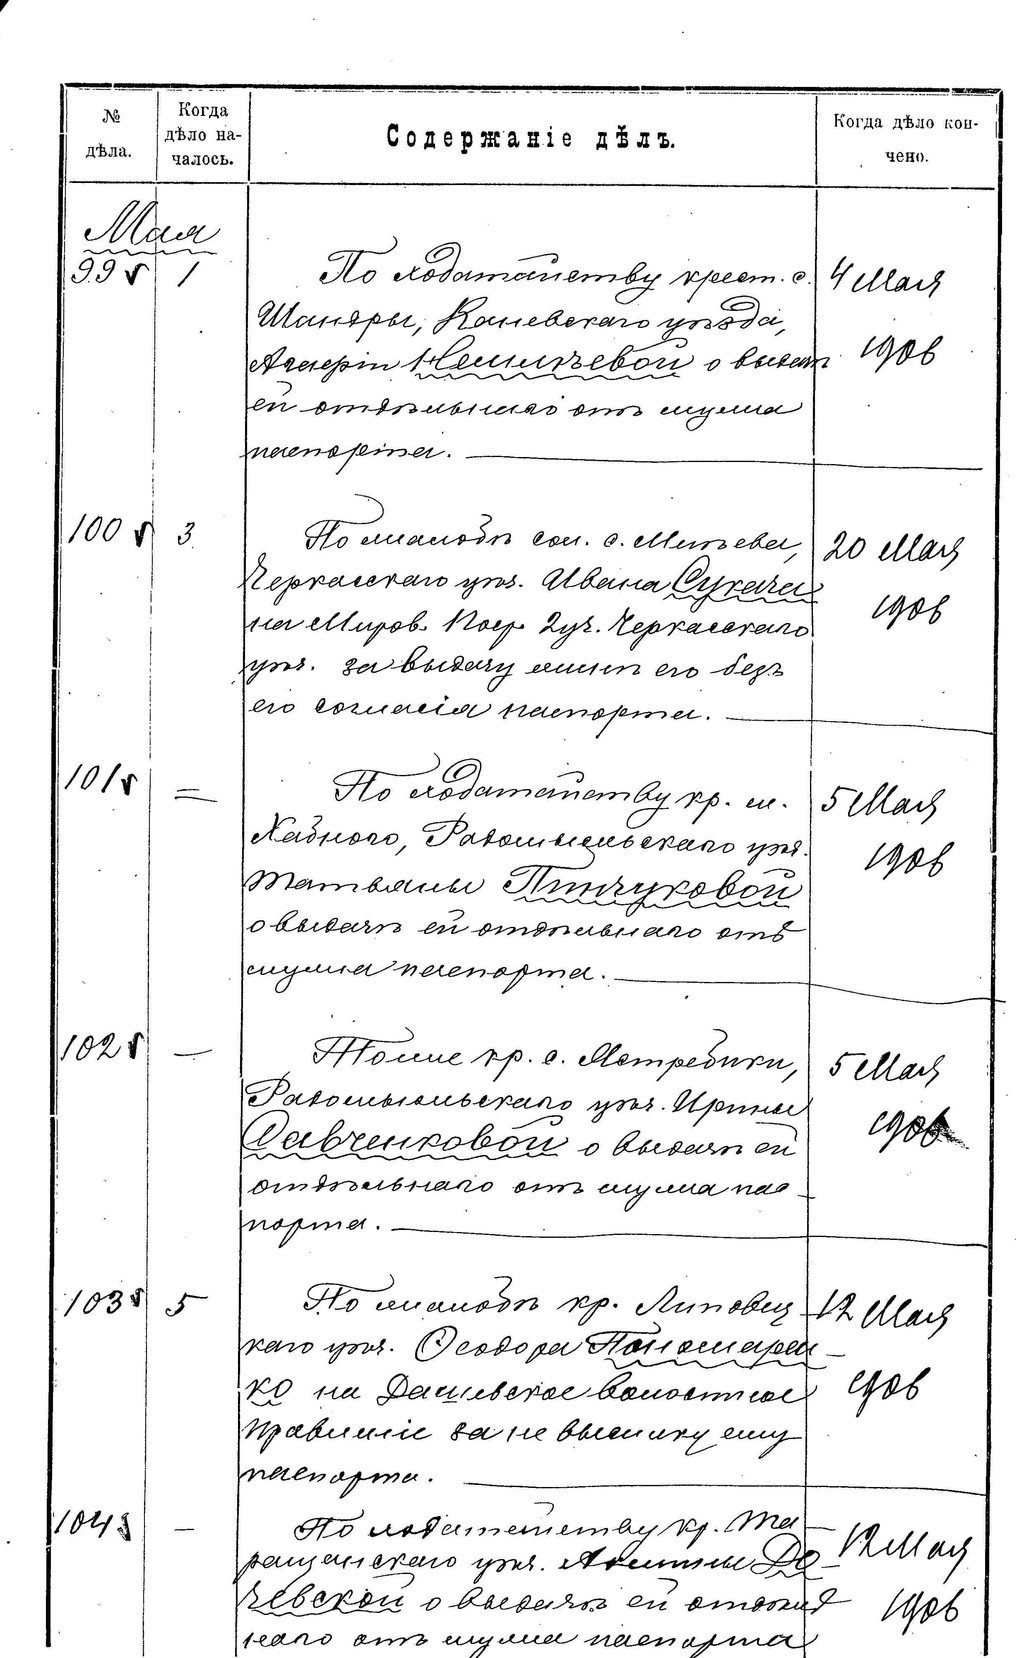 № дѣла.
Когда дѣло на-
чалось.
Содержаніе дѣлъ.
Когда дѣло кон-
чено.
Мая
99 1 По ходатайству крест. с. 4 Мая
Шандры, Каневскаго уѣзда, 1906
о выдачѣ
ей отдѣльнаго отъ мужа
паспорта.
100 3 По жалобѣ сол. с. 20 Мая
Черкасскаго уѣз. Ивана Сукача 1906
на Миров. Поср. 2 уч. Черкасскаго
уѣз. за выдачу женѣ его безъ
его согласія паспорта.
101 = По ходатайству кр. м. 5 Мая
Хабного, Радомысльскаго уѣз. 1906
Татьяны Пинчуковой
о выдачѣ ей отдѣльнаго отъ
мужа паспорта.
102 — Тоже кр. с. Ястребики, 5 Мая
Радомысльскаго уѣз. Ирины 1906
Савченковой о выдачѣ ей
отдѣльнаго отъ мужа пас-
порта.
103 5 По жалобѣ кр. Липовец- 12 Мая
каго уѣз. Ѳеодора Пономарен-
ко на Дашевское волостное 1906
Правленіе за не высылку ему
паспорта.
104 — По ходатайству кр. Та- 12 Мая
ращанскаго уѣз. До-
чевской о выдачѣ ей отдѣль- 1906
наго отъ мужа паспорта